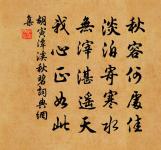 秋容何處佳
淡泊寄寒水
無滓湛遥天
我心正如此
胡寅潭溪秋碧詞典網
集